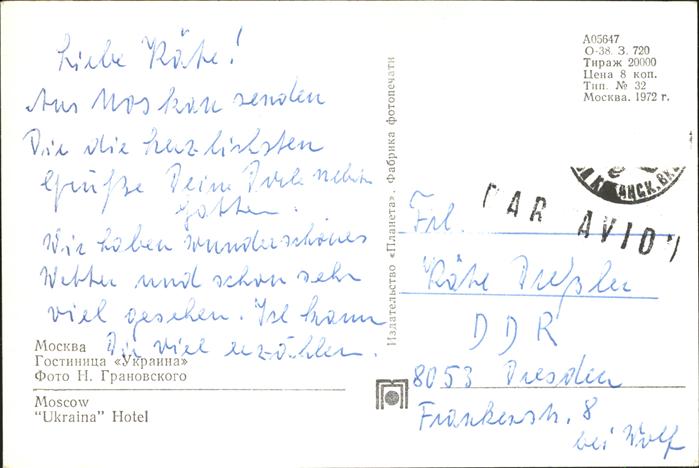 Liebe Käte!
Aus Moskau senden
Dir die herzlichsten
Grüße Deine Dorle nebst
Gatten.
Wir haben wunderschönes
Wetter und schon sehr
viel gesehen. Ich kann
Dir viel erzählen.
Москва
Гостиница «Украина»
Фото Н. Грановского
Moscow
"Ukraina" Hotel
Издательство «Планета». Фабрика фотопечати
А05647
О-38. З. 720
Тираж 20000
Цена 8 коп.
Тип. № 32
Москва. 1972 г.
PAR AVION
Frl.
Käte Dreßler
DDR
8053 Dresden
Frankenstr. 8
bei Wolf